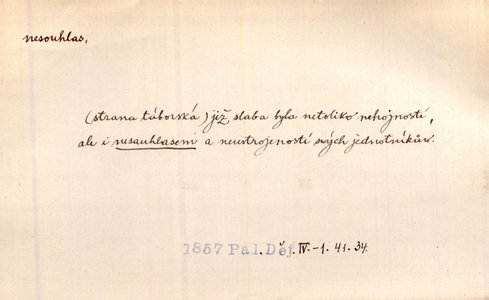 nesouhlas,
(strana táborská) již slaba byla netoliko nehojností,
ale i nesauhlasem a neustrojeností svých jednotníkův.
1857 Pal. Děj. IV.-1. 41. 34.